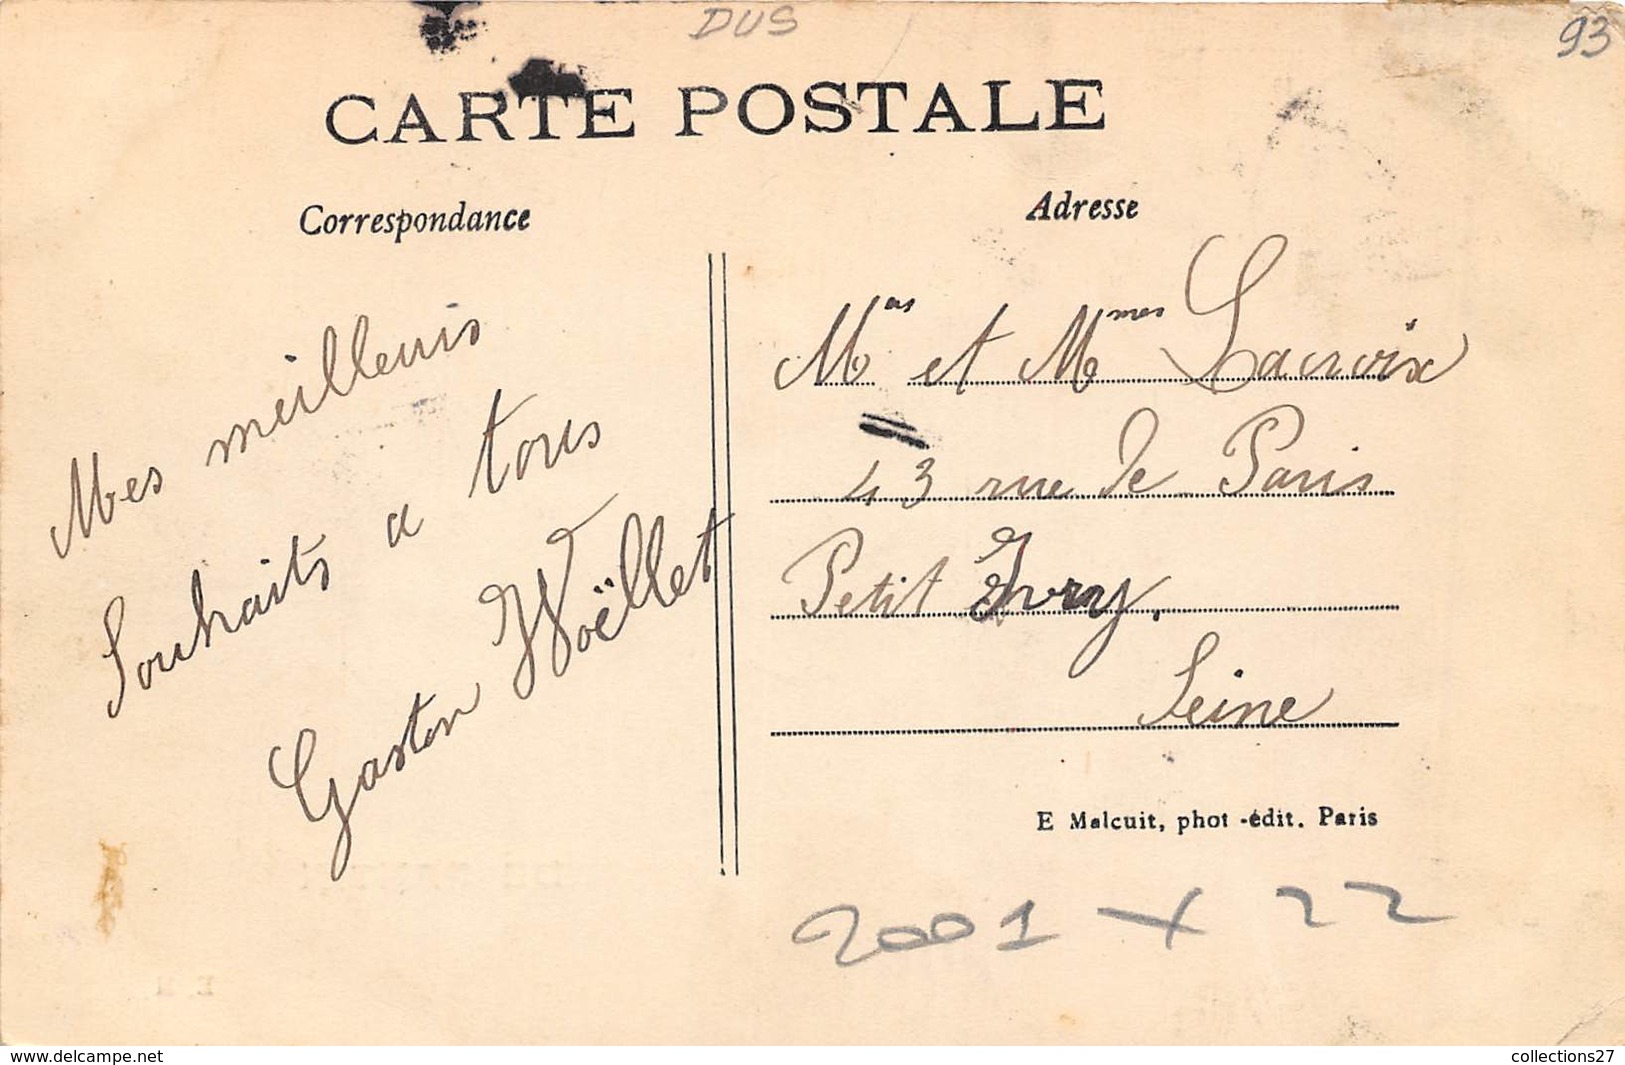 DUS
93
CARTE POSTALE
Correspondance
Adresse
Mes meilleurs
Souhaits a tous
Gaston Woëllet
Mrs et Mmes Lacroix
43 rue de Paris
Petit Ivry.
Seine
E Malcuit, phot-édit. Paris
2001 x 22
www.delcampe.net
collections27